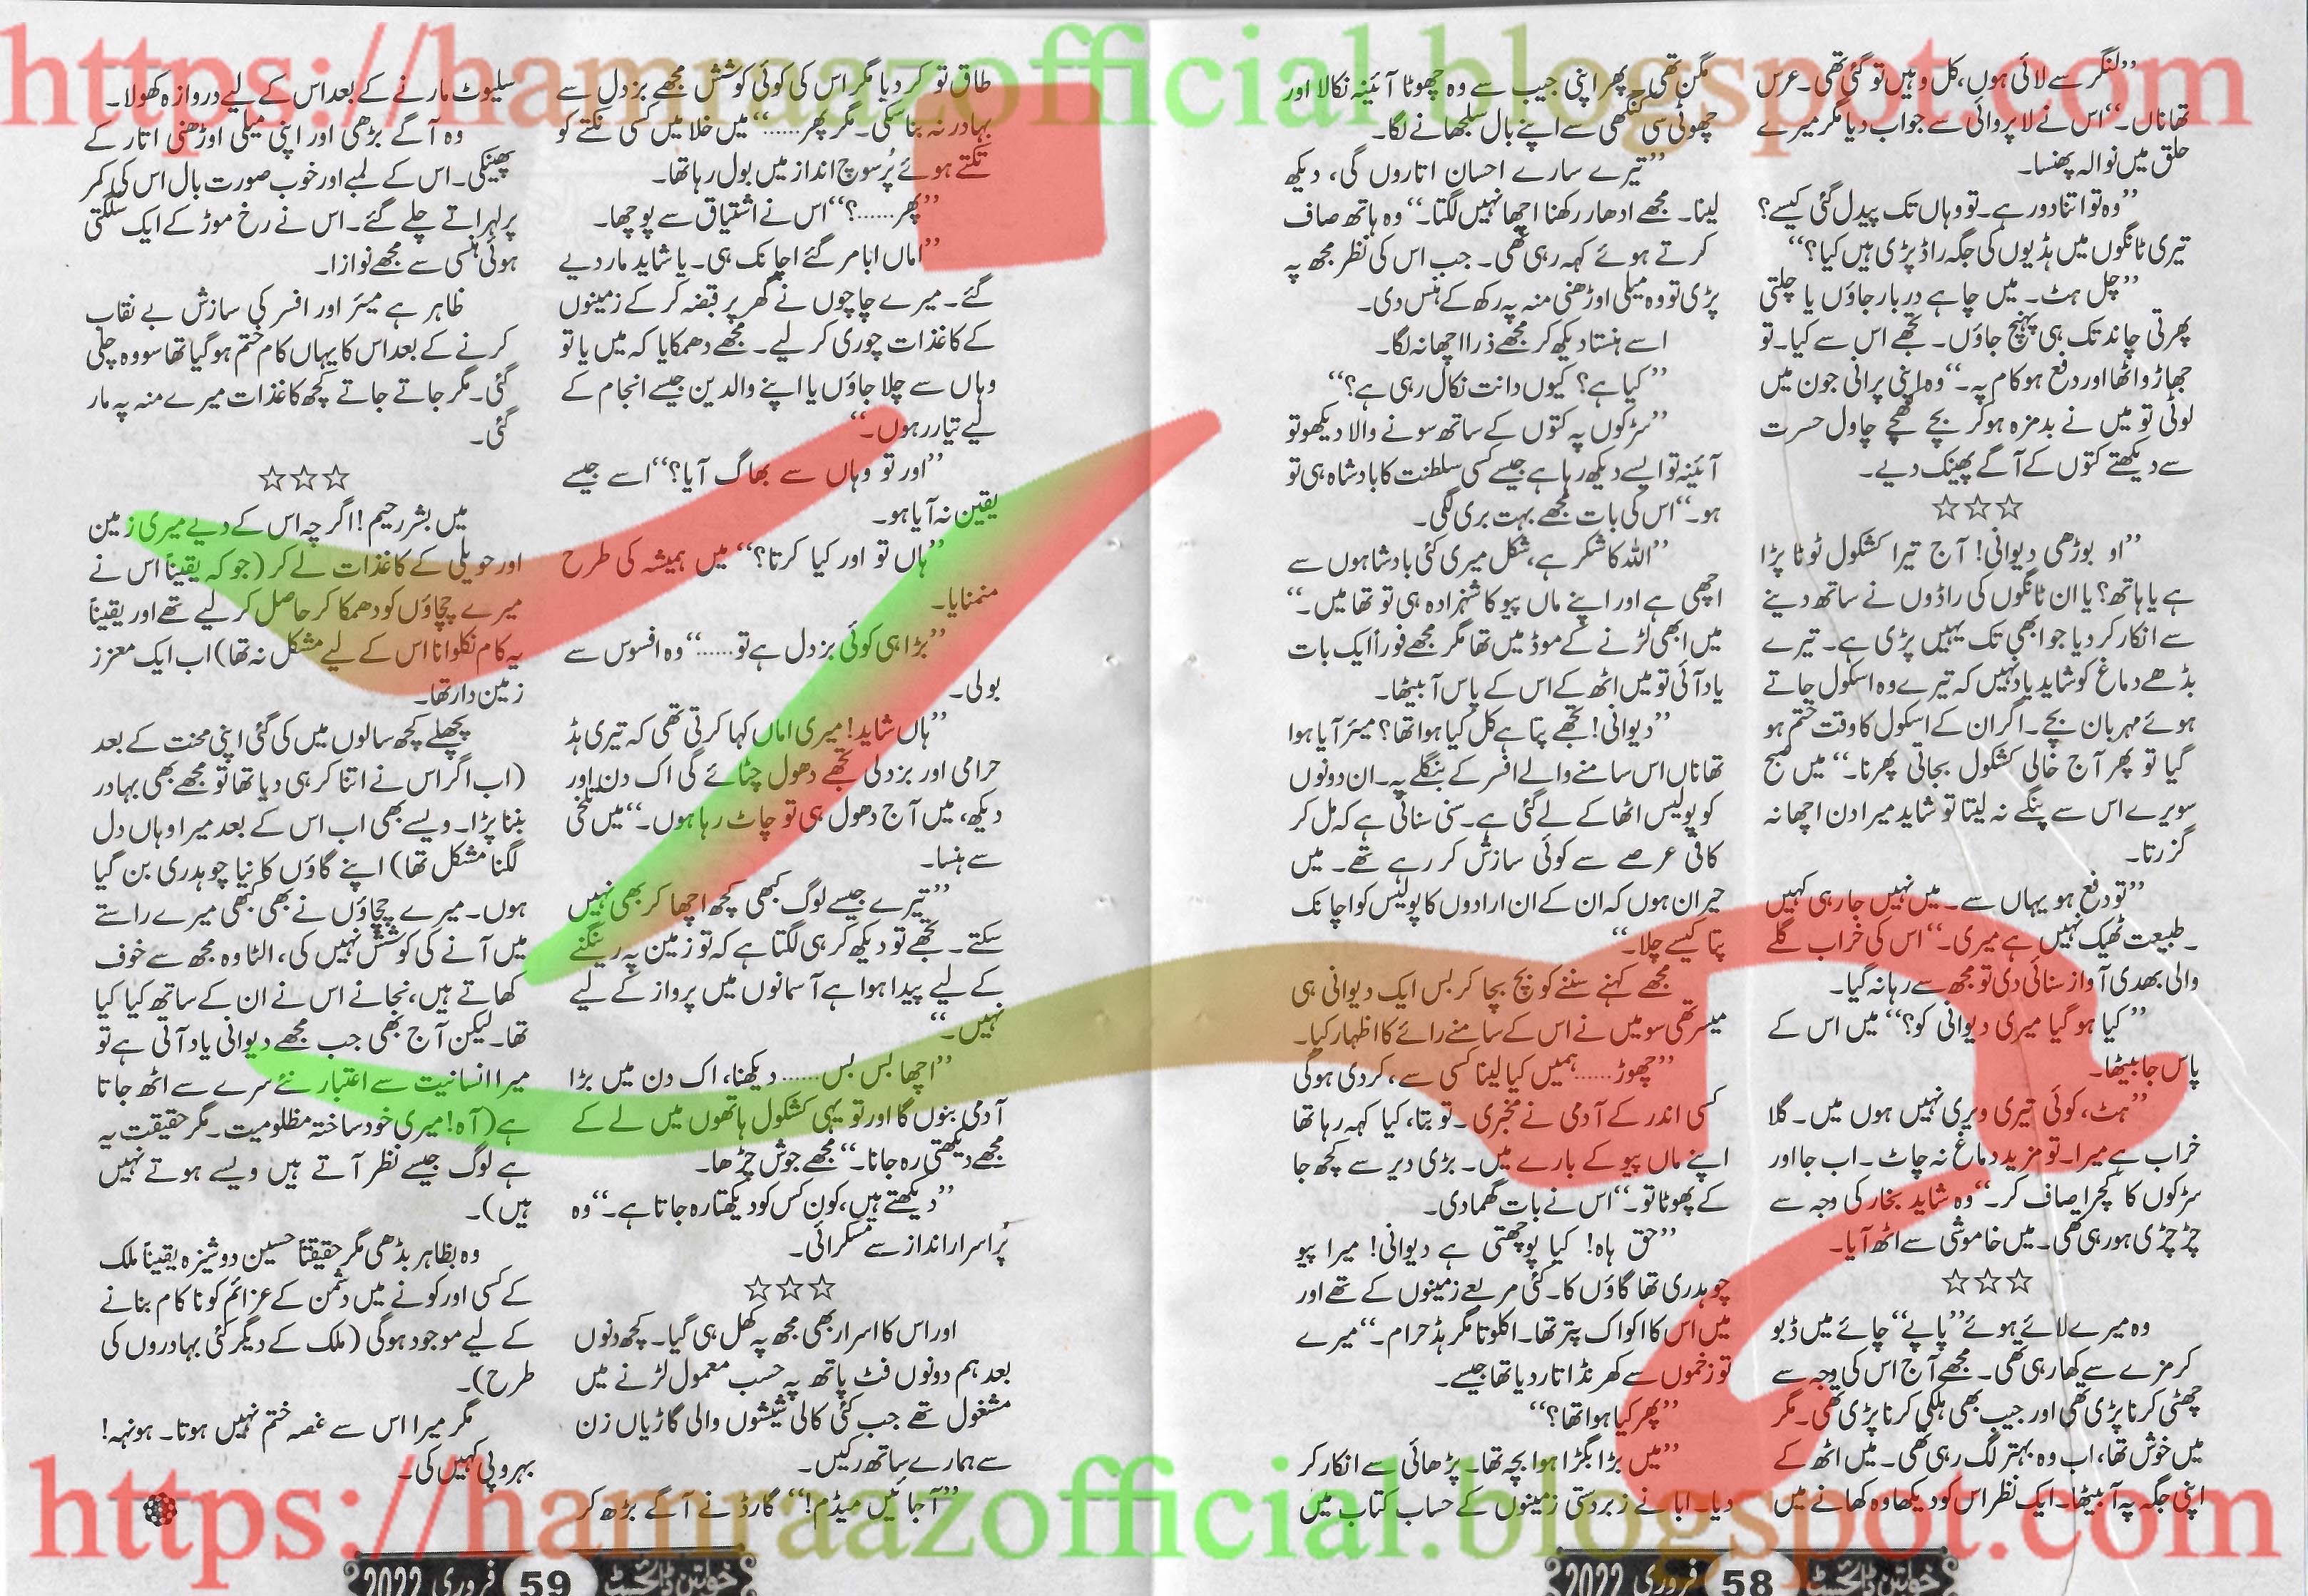 https://hamraazofficial.blogspot.com
’’لنگر سے لائی ہوں، کل وہیں تو گئی تھی۔ عرس
تھا ناں۔‘‘ اس نے لاپروائی سے جواب دیا مگر میرے
حلق میں نوالہ پھنسا۔
’’وہ تو اتنا دور ہے۔ تو وہاں تک پیدل گئی کیسے؟
تیری ٹانگوں میں ہڈیوں کی جگہ راڈ پڑی ہیں کیا؟‘‘
’’چل ہٹ۔ میں چاہے دربار جاؤں یا چلتی
پھرتی چاند تک ہی پہنچ جاؤں۔ تجھے اس سے کیا۔ تو
جھاڑو اٹھا اور دفع ہو کام پہ۔‘‘ وہ اپنی پرانی جون میں
لوٹی تو میں نے بدمزہ ہو کر بچے کھچے چاول حسرت
سے دیکھتے کتوں کے آگے پھینک دیے۔
☆☆☆
’’او بوڑھی دیوانی! آج تیرا کشکول ٹوٹا پڑا
ہے یا ہاتھ؟ یا ان ٹانگوں کی راڈوں نے ساتھ دینے
سے انکار کر دیا جو ابھی تک یہیں پڑی ہے۔ تیرے
بڈھے دماغ کو شاید یاد نہیں کہ تیرے وہ اسکول جاتے
ہوئے مہربان بچے۔ اگر ان کے اسکول کا وقت ختم ہو
گیا تو پھر آج خالی کشکول بجاتی پھرنا۔‘‘ میں صبح
سویرے اس سے پنگے نہ لیتا تو شاید میرا دن اچھا نہ
گزرتا۔
’’تو دفع ہو یہاں سے۔ میں نہیں جا رہی کہیں
۔ طبیعت ٹھیک نہیں ہے میری۔‘‘ اس کی خراب گلے
والی بھدی آواز سنائی دی تو مجھ سے رہا نہ گیا۔
’’کیا ہو گیا میری دیوانی کو؟‘‘ میں اس کے
پاس جا بیٹھا۔
’’ہٹ، کوئی تیری ویری نہیں ہوں میں۔ گلا
خراب ہے میرا۔ تو مزید دماغ نہ چاٹ۔ اب جا اور
سڑکوں کا کچرا صاف کر۔‘‘ وہ شاید بخار کی وجہ سے
چڑچڑی ہو رہی تھی۔ میں خاموشی سے اٹھ آیا۔
☆☆☆
وہ میرے لائے ہوئے ’’پاپے‘‘ چائے میں ڈبو
کر مزے سے کھا رہی تھی۔ مجھے آج اس کی وجہ سے
چھٹی کرنا پڑی تھی اور جیب بھی ہلکی کرنا پڑی تھی۔ مگر
میں خوش تھا، اب وہ بہتر لگ رہی تھی۔ میں اٹھ کے
اپنی جگہ پہ آ بیٹھا۔ ایک نظر اس کو دیکھا وہ کھانے میں
مگن تھی۔ پھر اپنی جیب سے وہ چھوٹا آئینہ نکالا اور
چھوٹی سی کنگھی سے اپنے بال سلجھانے لگا۔
’’تیرے سارے احسان اتاروں گی، دیکھ
لینا۔ مجھے ادھار رکھنا اچھا نہیں لگتا۔‘‘ وہ ہاتھ صاف
کرتے ہوئے کہہ رہی تھی۔ جب اس کی نظر مجھ پہ
پڑی تو وہ میلی اوڑھنی منہ پہ رکھ کے ہنس دی۔
اسے ہنستا دیکھ کر مجھے ذرا اچھا نہ لگا۔
’’کیا ہے؟ کیوں دانت نکال رہی ہے؟‘‘
’’سڑکوں پہ کتوں کے ساتھ سونے والا دیکھو تو
آئینہ تو ایسے دیکھ رہا ہے جیسے کسی سلطنت کا بادشاہ ہی تو
ہو۔‘‘ اس کی بات مجھے بہت بری لگی۔
’’اللہ کا شکر ہے، شکل میری کئی بادشاہوں سے
اچھی ہے اور اپنے ماں پیو کا شہزادہ ہی تو تھا میں۔‘‘
میں ابھی لڑنے کے موڈ میں تھا مگر مجھے فوراً ایک بات
یاد آئی تو میں اٹھ کے اس کے پاس آ بیٹھا۔
’’دیوانی! تجھے پتا ہے کل کیا ہوا تھا؟ میئر آیا ہوا
تھا ناں اس سامنے والے افسر کے بنگلے پہ۔ ان دونوں
کو پولیس اٹھا کے لے گئی ہے۔ سنی سنائی ہے کہ مل کر
کافی عرصے سے کوئی سازش کر رہے تھے۔ میں
حیران ہوں کہ ان کے ان ارادوں کا پولیس کو اچانک
پتا کیسے چلا۔‘‘
مجھے کہنے سننے کو بچ بچا کر بس ایک دیوانی ہی
میسر تھی سو میں نے اس کے سامنے رائے کا اظہار کیا۔
’’چھوڑ...... ہمیں کیا لینا کسی سے، کر دی ہوگی
کسی اندر کے آدمی نے مخبری۔ تو بتا، کیا کہہ رہا تھا
اپنے ماں پیو کے بارے میں۔ بڑی دیر سے کچھ جا
کے پھوٹا تو۔‘‘ اس نے بات گھما دی۔
’’حق ہاہ! کیا پوچھتی ہے دیوانی! میرا پیو
چوہدری تھا گاؤں کا۔ کئی مربعے زمینوں کے تھے اور
میں اس کا اکو اک پتر تھا۔ اکلوتا مگر ہڈ حرام۔‘‘ میرے
تو زخموں سے کھرنڈ اتار دیا تھا جیسے۔
’’پھر کیا ہوا تھا؟‘‘
’’میں بڑا بگڑا ہوا بچہ تھا۔ پڑھائی سے انکار کر
دیا۔ ابا نے زبردستی زمینوں کے حساب کتاب میں
خواتین ڈائجسٹ 58 فروری 2022
طاق تو کر دیا مگر اس کی کوئی کوشش مجھے بزدل سے
بہادر نہ بنا سکی۔ مگر پھر......‘‘ میں خلا میں کسی نکتے کو
تکتے ہوئے پُرسوچ انداز میں بول رہا تھا۔
’’پھر......؟‘‘ اس نے اشتیاق سے پوچھا۔
’’اماں ابا مر گئے اچانک ہی۔ یا شاید مار دیے
گئے۔ میرے چاچوں نے گھر پر قبضہ کر کے زمینوں
کے کاغذات چوری کر لیے۔ مجھے دھمکایا کہ میں یا تو
وہاں سے چلا جاؤں یا اپنے والدین جیسے انجام کے
لیے تیار رہوں۔‘‘
’’اور تو وہاں سے بھاگ آیا؟‘‘ اسے جیسے
یقین نہ آیا ہو۔
’’ہاں تو اور کیا کرتا؟‘‘ میں ہمیشہ کی طرح
منمنایا۔
’’بڑا ہی کوئی بزدل ہے تو......‘‘ وہ افسوس سے
بولی۔
’’ہاں شاید! میری اماں کہا کرتی تھی کہ تیری ہڈ
حرامی اور بزدلی تجھے دھول چٹائے گی اک دن اور
دیکھ، میں آج دھول ہی تو چاٹ رہا ہوں۔‘‘ میں تلخی
سے ہنسا۔
’’تیرے جیسے لوگ کبھی کچھ اچھا کر بھی نہیں
سکتے۔ تجھے تو دیکھ کر ہی لگتا ہے کہ تو زمین پہ رینگنے
کے لیے پیدا ہوا ہے آسمانوں میں پرواز کے لیے
نہیں۔‘‘
’’اچھا بس بس...... دیکھنا، اک دن میں بڑا
آدمی بنوں گا اور تو یہی کشکول ہاتھوں میں لے کے
مجھے دیکھتی رہ جانا۔‘‘ مجھے جوش چڑھا۔
’’دیکھتے ہیں، کون کس کو دیکھتا رہ جاتا ہے۔‘‘ وہ
پُراسرار انداز سے مسکرائی۔
☆☆☆
اور اس کا اسرار بھی مجھ پہ کھل ہی گیا۔ کچھ دنوں
بعد ہم دونوں فٹ پاتھ پہ حسب معمول لڑنے میں
مشغول تھے جب کئی کالی شیشوں والی گاڑیاں زن
سے ہمارے ساتھ رکیں۔
’’آ جائیں میڈم!‘‘ گارڈ نے آگے بڑھ کر
سلیوٹ مارنے کے بعد اس کے لیے دروازہ کھولا۔
وہ آگے بڑھی اور اپنی میلی اوڑھنی اتار کے
پھینکی۔ اس کے لمبے اور خوب صورت بال اس کی کمر
پر لہراتے چلے گئے۔ اس نے رخ موڑ کے ایک سلگتی
ہوئی ہنسی سے مجھے نوازا۔
ظاہر ہے میئر اور افسر کی سازش بے نقاب
کرنے کے بعد اس کا یہاں کام ختم ہو گیا تھا سو وہ چلی
گئی۔ مگر جاتے جاتے کچھ کاغذات میرے منہ پہ مار
گئی۔
☆☆☆
میں بشر رحیم! اگر چہ اس کے دیے میری زمین
اور حویلی کے کاغذات لے کر (جو کہ یقیناً اس نے
میرے چچاؤں کو دھمکا کر حاصل کر لیے تھے اور یقیناً
یہ کام نکلوانا اس کے لیے مشکل نہ تھا) اب ایک معزز
زمین دار تھا۔
پچھلے کچھ سالوں میں کی گئی اپنی محنت کے بعد
(اب اگر اس نے اتنا کر ہی دیا تھا تو مجھے بھی بہادر
بننا پڑا۔ ویسے بھی اب اس کے بعد میرا وہاں دل
لگنا مشکل تھا) اپنے گاؤں کا نیا چوہدری بن گیا
ہوں۔ میرے چچاؤں نے بھی کبھی میرے راستے
میں آنے کی کوشش نہیں کی، الٹا وہ مجھ سے خوف
کھاتے ہیں، نجانے اس نے ان کے ساتھ کیا کیا
تھا۔ لیکن آج بھی جب مجھے دیوانی یاد آتی ہے تو
میرا انسانیت سے اعتبار نئے سرے سے اٹھ جاتا
ہے (آہ! میری خودساختہ مظلومیت۔ مگر حقیقت یہ
ہے لوگ جیسے نظر آتے ہیں ویسے ہوتے نہیں
ہیں)۔
وہ بظاہر بڈھی مگر حقیقتاً حسین دوشیزہ یقیناً ملک
کے کسی اور کونے میں دشمن کے عزائم کو ناکام بنانے
کے لیے موجود ہوگی (ملک کے دیگر کئی بہادروں کی
طرح)۔
مگر میرا اس سے غصہ ختم نہیں ہوتا۔ ہونہہ!
بہروپی کہیں کی۔
خواتین ڈائجسٹ 59 فروری 2022
https://hamraazofficial.blogspot.com